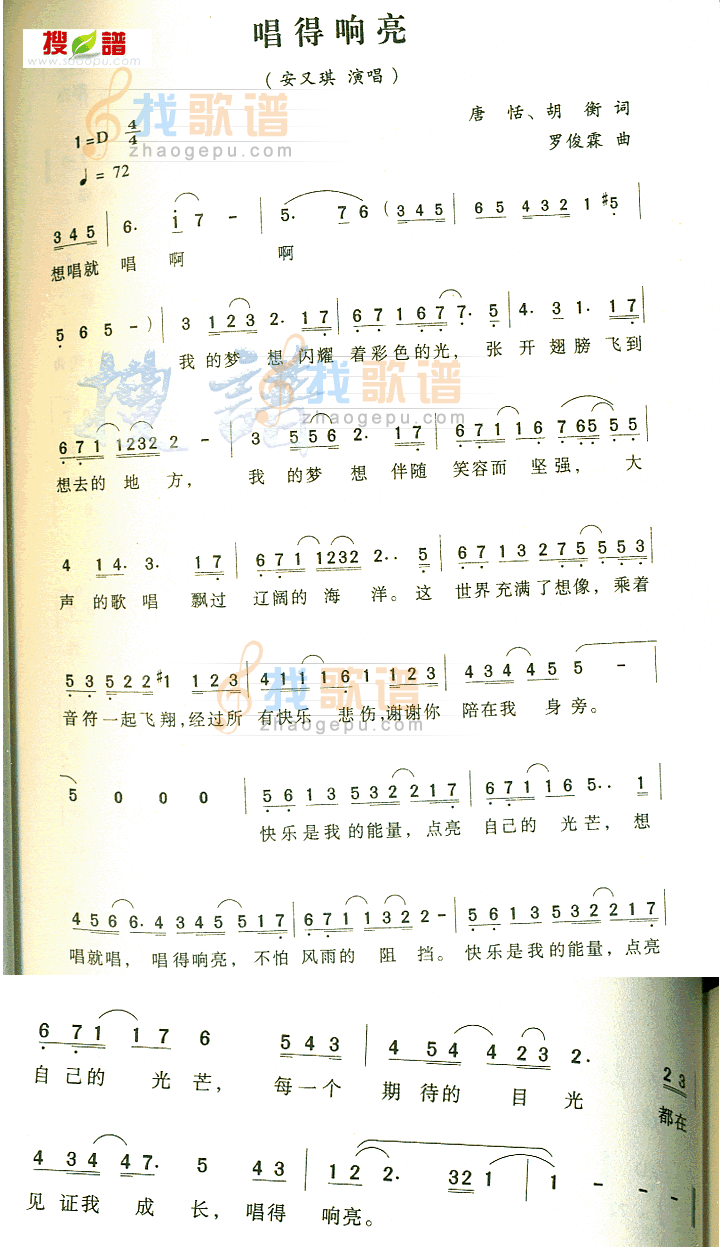 搜谱
www.sooopu.com
唱得响亮
(安又琪 演唱)
找歌谱
zhaogepu.com
唐 恬、胡 衡 词
1=D 4/4
罗俊霖 曲
♩= 72
3 4 5 | 6. i 7 - | 5. 7 6 (3 4 5 | 6 5 4 3 2 1 #5
想唱就 唱 啊 啊
5 6 5 -) | 3 1 2 3 2. 1 7 | 6 7 1 6 7 7. 5 | 4. 3 1. 1 7
我的梦 想 闪耀 着彩色的光, 张 开 翅膀 飞到
找歌谱
zhaogepu.com
6 7 1 1 2 3 2 2 - | 3 5 5 6 2. 1 7 | 6 7 1 1 6 7 6 5 5 5 5
想去的 地 方, 我 的梦 想 伴随 笑容而 坚强, 大
4 1 4. 3. 1 7 | 6 7 1 1 2 3 2 2.. 5 | 6 7 1 3 2 7 5 5 5 3
声 的歌 唱 飘过 辽阔的 海 洋。这 世界充满了想像,乘着
找歌谱
zhaogepu.com
5 3 5 2 2 #1 1 2 3 | 4 1 1 1 6 1 1 2 3 | 4 3 4 4 5 5 -
音符一起飞翔,经过所 有快乐 悲伤,谢谢你 陪在我 身旁。
5 0 0 0 | 5 6 1 3 5 3 2 2 1 7 | 6 7 1 1 6 5.. 1
快乐是我的能量,点亮 自己的 光芒, 想
4 5 6 6. 4 3 4 5 5 1 7 | 6 7 1 1 3 2 2 - | 5 6 1 3 5 3 2 2 1 7
唱就唱, 唱得响亮, 不怕 风雨的 阻 挡。快乐是我的能量,点亮
6 7 1 1 7 6 5 4 3 | 4 5 4 4 2 3 2. 2 3
自己的 光 芒, 每一个 期 待的 目 光 都在
4 3 4 4 7. 5 4 3 | 1 2 2. 3 2 1 | 1 - - -
见 证我 成 长, 唱得 响亮。